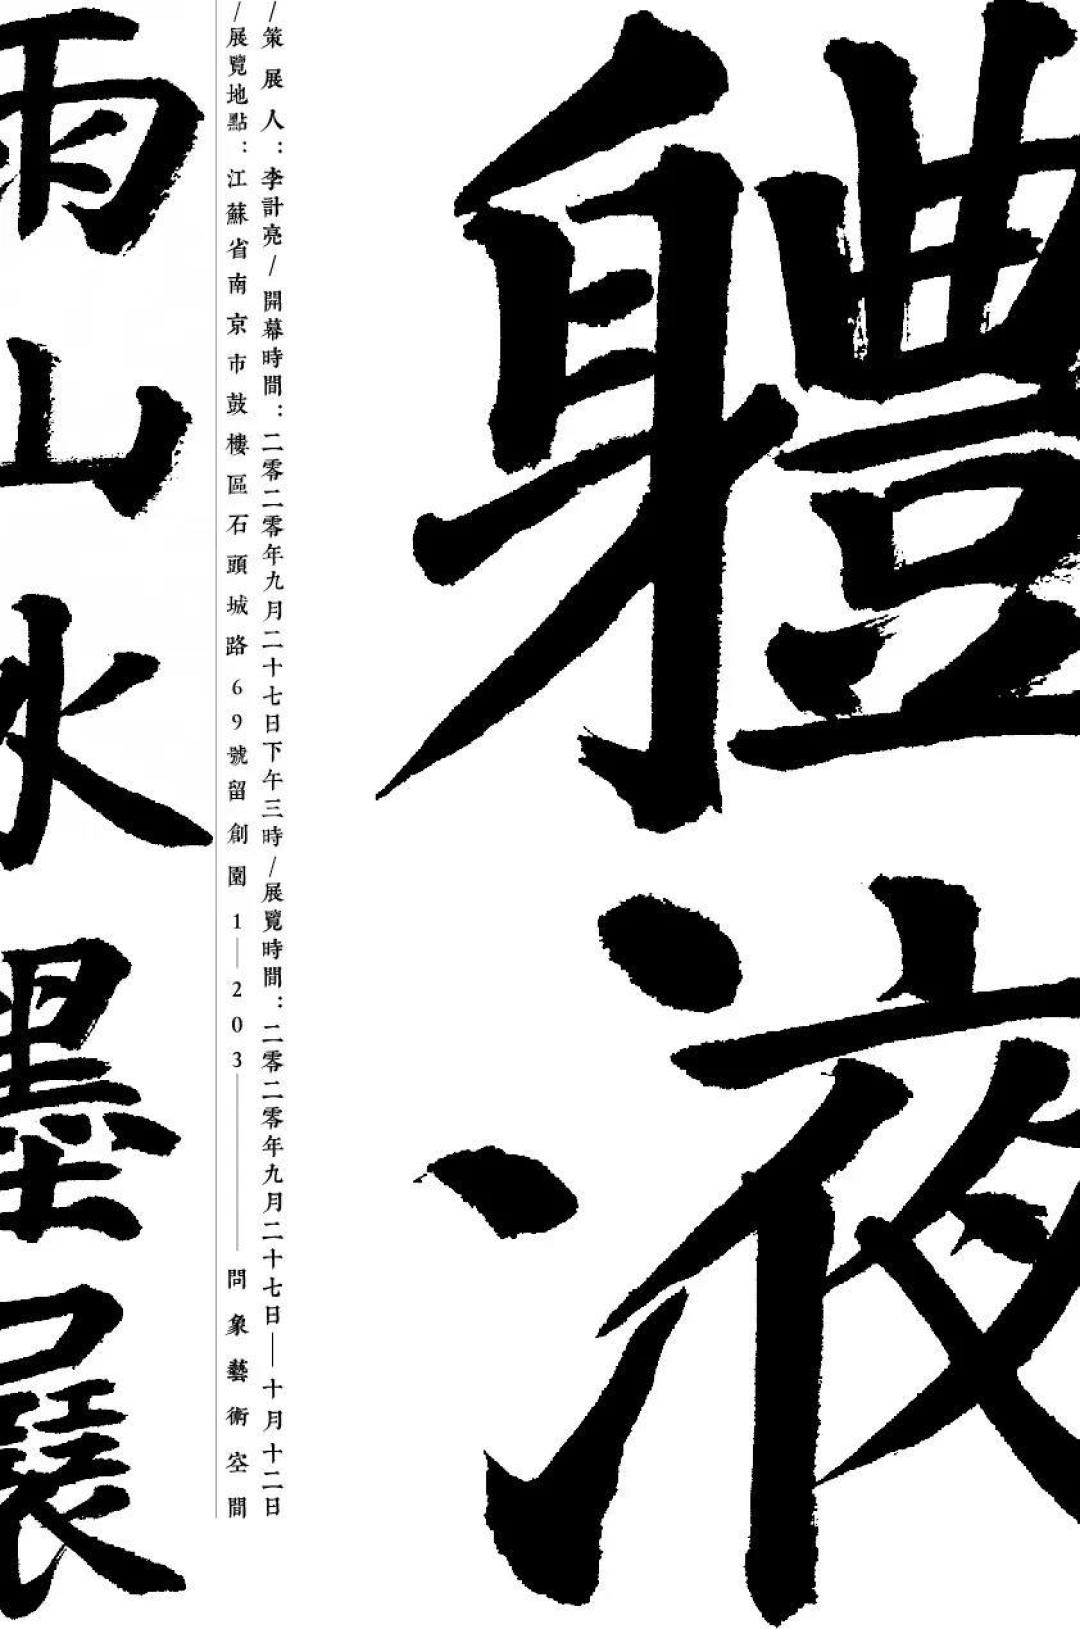 軆液
/策展人：李計亮/開幕時間：二零二零年九月二十七日下午三時/展覽時間：二零二零年九月二十七日——十月十二日
/展覽地點：江蘇省南京市鼓樓區石頭城路69號留創園1—203————問象藝術空間
雨山水墨展